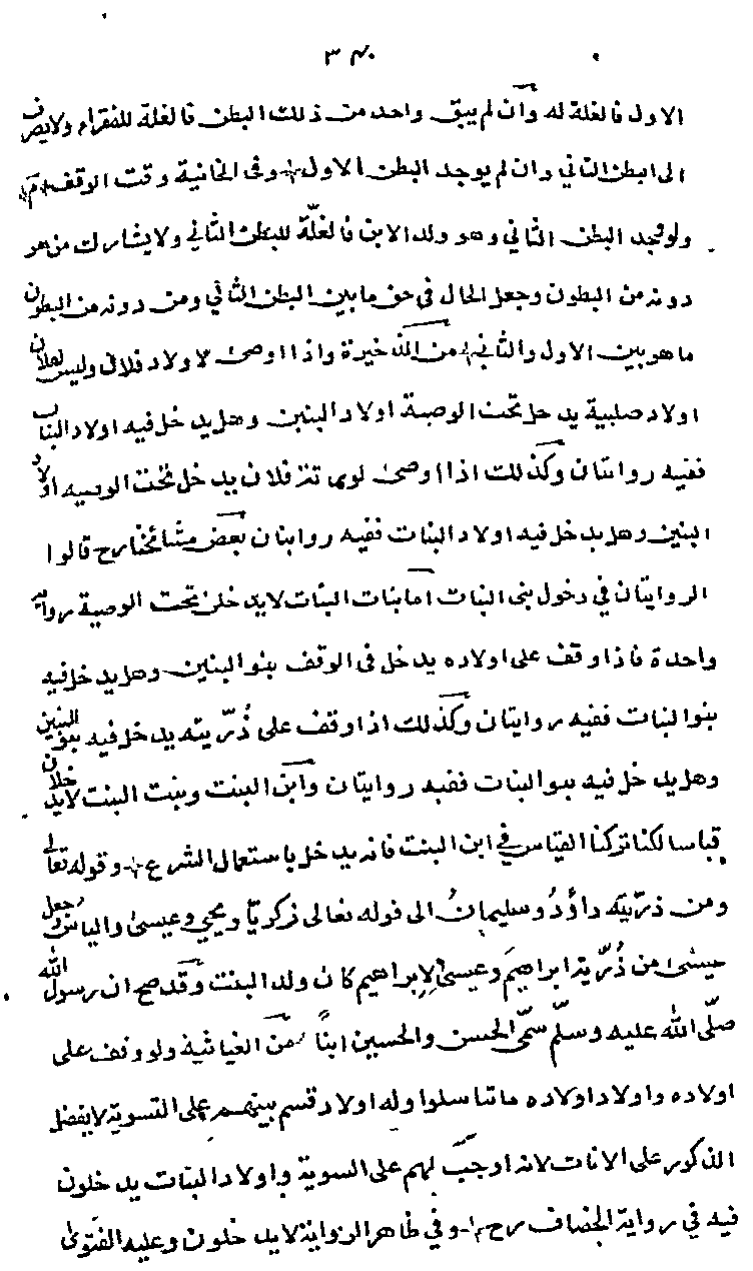 ٣٤٠
الاول فالغلة له وان لم يبق واحد من ذلك البطن فالغلة للفقراء ولا يصرف
الى البطن الثاني وان لم يوجد البطن الاول وفى الخانية وقت الوقف
ولو وجد البطن الثاني وهو ولد الابن فالغلّة للبطن الثاني ولا يشارك من هو
دونه من البطون وجعل الحال في حق ما بين البطن الثاني ومن دونه من البطون
ما هو بين الاول والثاني من الذخيرة واذا اوصى لاولاد فلان وليس لفلان
اولاد صلبية يدخل تحت الوصية اولاد البنين وهل يدخل فيه اولاد البنات
ففيه روايتان وكذلك اذا اوصى لورثة فلان يدخل تحت الوصيه اولاد
البنين وهل يدخل فيه اولاد البنات ففيه روايتان بعض مشائخنا رح قالوا
الروايتان في دخول بنى البنات اما بنات البنات لا يدخلن تحت الوصية رواية
واحدة فاذا وقف على اولاده يدخل فى الوقف بنو البنين وهل يدخل فيه
بنو البنات ففيه روايتان وكذلك اذا وقف على ذُرّيته يدخل فيه بنو البنين
وهل يدخل فيه بنو البنات ففيه روايتان وابن البنت وبنت البنت لا يدخلان
قياسا لكنا تركنا القياس في ابن البنت فانه يدخل باستعمال الشرع وقوله تعالى
ومن ذرّيته داؤدُ وسليمانُ الى قوله تعالى زكريّا ويحيي وعيسىٰ والياس جعل
عيسىٰ من ذُرّية ابراهيمَ وعيسىٰ لابراهيم كان ولد البنت وقد صح ان رسول الله
صلّى الله عليه وسلّم سمّى الحسن والحسين ابنًا من الغياثية ولو وقف على
اولاده واولاد اولاده ما تناسلوا وله اولاد قسم بينهم على التسوية لا يفضل
الذكور على الاناث لانه اوجب لهم على السوية واولاد البنات يدخلون
فيه في رواية الخصاف رح وفي ظاهر الرواية لا يدخلون وعليه الفتوىٰ